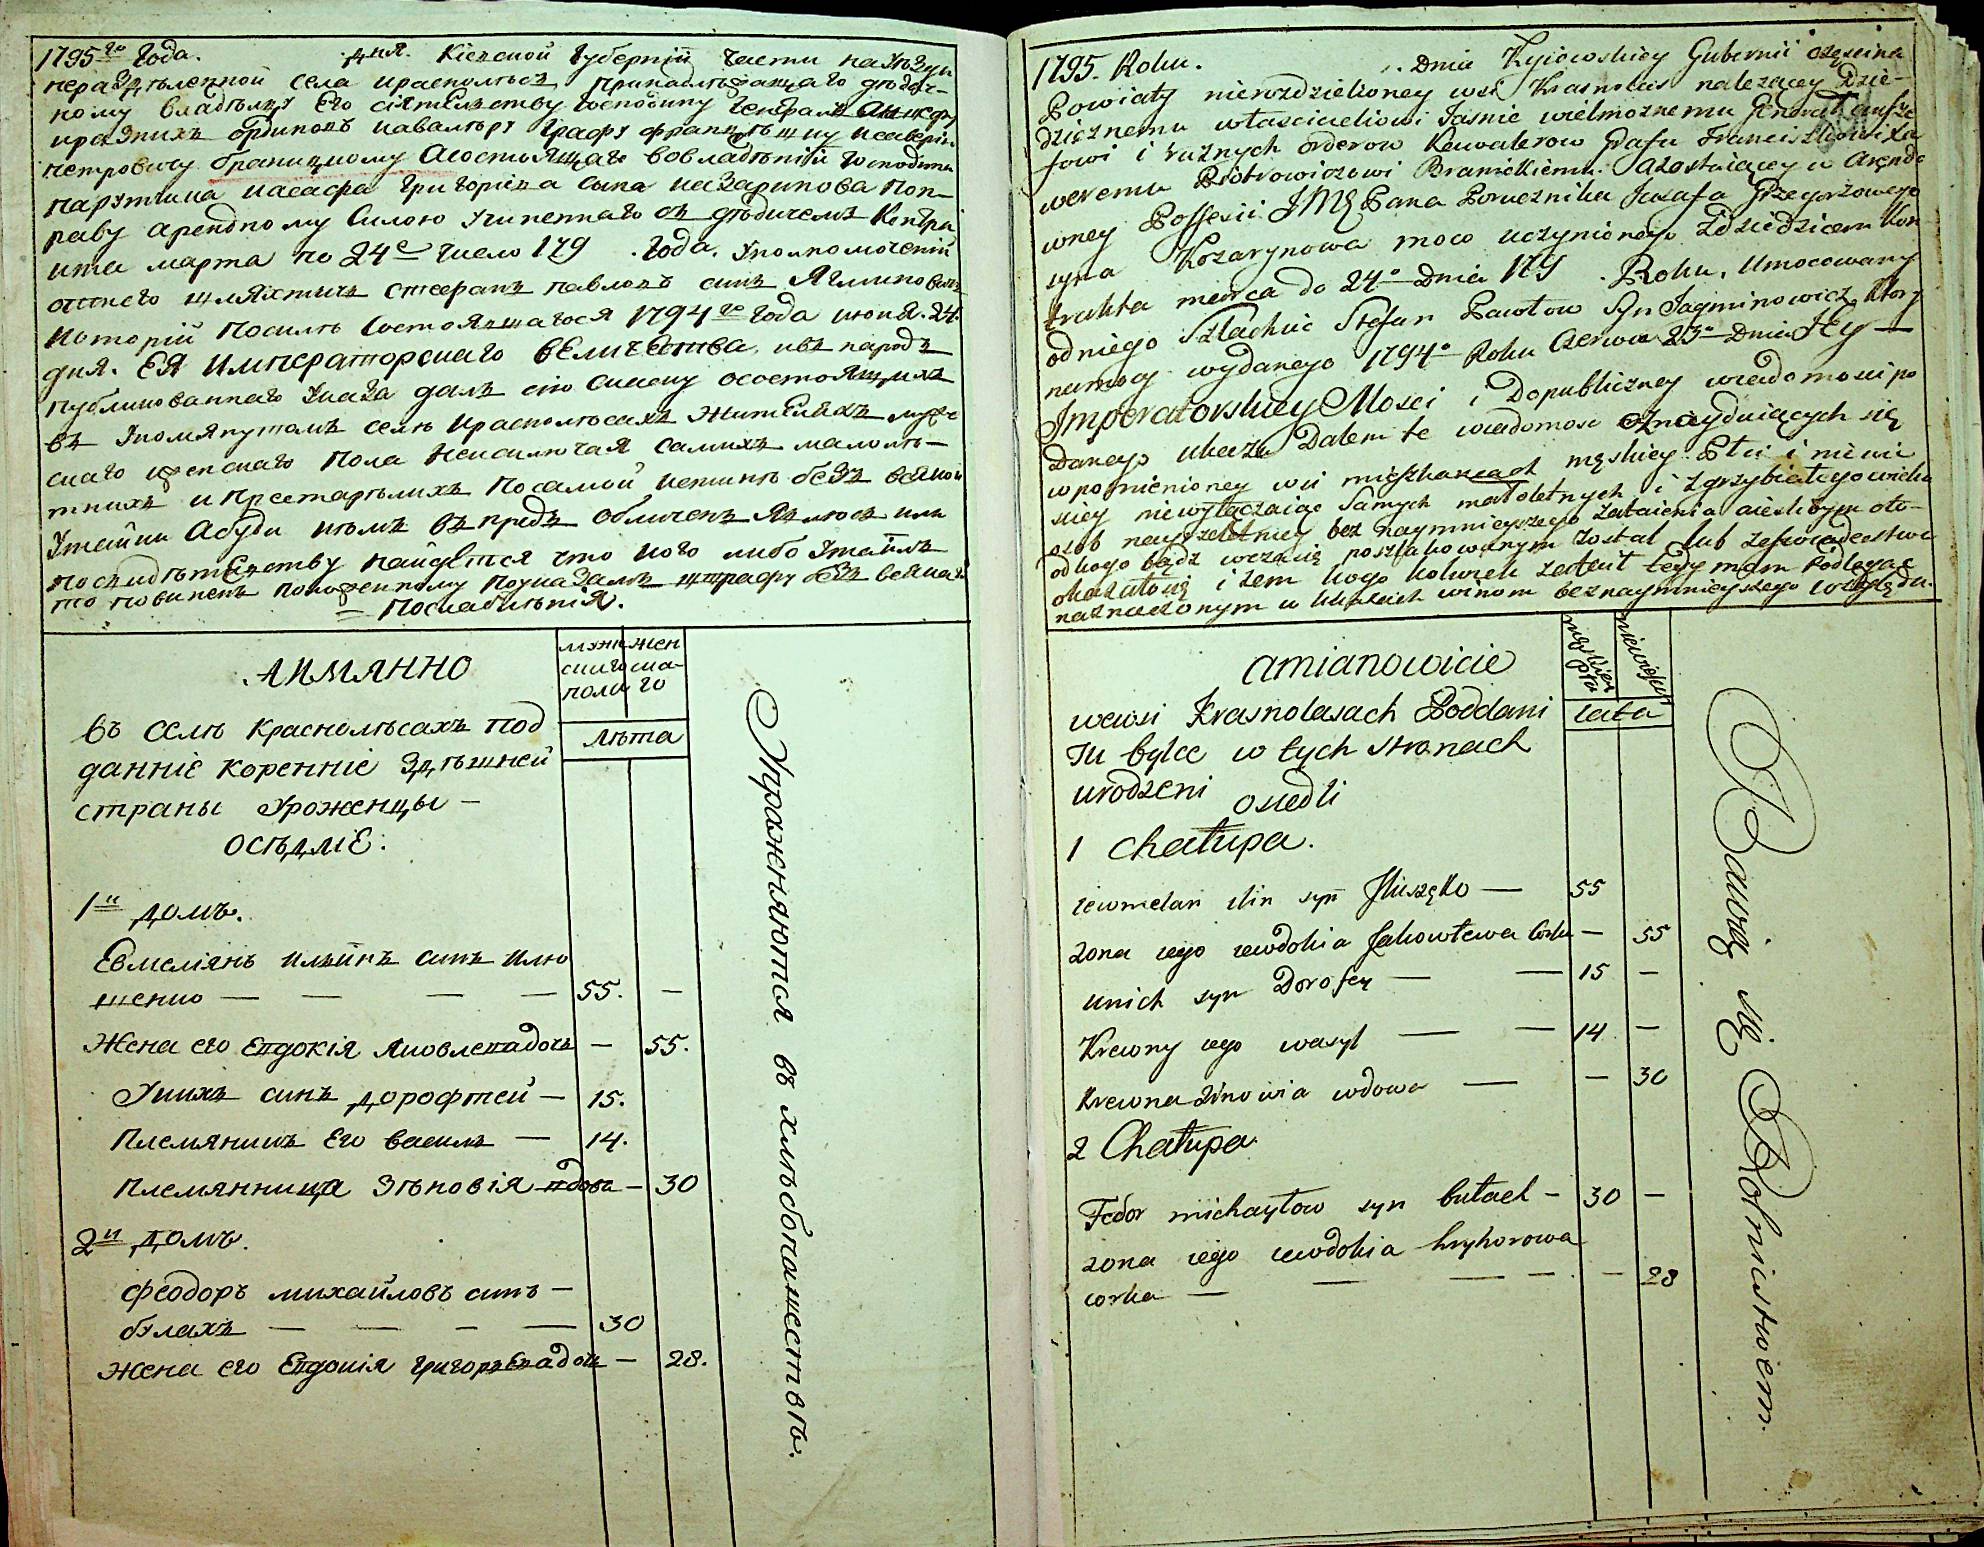 1795го Года. дня. Кіевской Губерніи части на Уѣзды
нераздѣленной села краснолѣсъ принадлежащаго дѣдич-
ному владѣльцу Его сіятельству Господину Генералъ Аншефу
и разнихъ ординовъ кавалѣру Графу францѣшку Ксаверію
петровичу Браницкому Асостоящаго вовладѣніи Господина
парутчика иасафа Григоріева сына назаринова поп-
раву арендному Силою учиненнаго съ дѣдичемъ Контра
кта марта по 24е число 179 . Года. Уполномоченій
отнего шляхтичъ стефанъ павловъ синъ Ягминовичъ
который Посилѣ Состоявшагося 1794го Года июня. 24.
дня. ЕЯ Императорскаго вЕличЕства. ивъ народъ
публикованнаго Указа далъ сію сказку осостоящихъ
въ Упомянутомъ селѣ Краснолѣсахъ ЖитЕляхъ муже
скаго иженскаго пола Неисключая самихъ малолѣ-
тнихъ и Престарѣлихъ Посамой истинѣ безъ всякой
Утайки Абуди кѣмъ въпредь обличенъ Явлюсь или
посвидѣтЕлству найдЕтся что кого либо Утаилъ
то повиненъ положенному поуказамъ штрафу безъ всякаго
Послабленія.
АИМЯННО
мужескаго пола
женскаго
лѣта
въ селѣ Краснолѣсахъ под
данніЕ коренніе здѣшней
страны Уроженцы –
осѣдліЕ.
1и домъ.
Евмеліянъ ильинъ синъ Илю
шенко — — — — 55. —
Жена его Евдокія Яковлевадочь — 55.
Унихъ синъ дорофтей — 15.
Племянникъ Его василь — 14.
племянница Зѣновія вдова — 30
2и домъ.
феодоръ михайловъ синъ —
булахъ — — — — 30
жена его Евдокія григорьЕвадочь — 28.
Упражняются въ хлѣбопашествѣ.
1795. Roku. Dnia Kyiowskiey Gubernii częscina
Powiaty nierozdzieloney wsi Krasnolas należącey Dzie-
dzicznemu własciucieliowi Jasnie wielmoznemu Generał anfsze
fowi i rużnych orderow Kawalerow Grafu Franciszkowi Xa
weremu Piotrowiczowi Branickiemu. azostaiącey w Arend
owney Possessii JMę Pana Porucznika Jozafa Grzegorzowego
syna Kozarynowa moco uczynionego Zdziedzicem Kon
trakta merca do 24o Dnia 179 . Roku. Umocowany
odniego Szlachcic Stefan Pawłow Syn Jagminowicz, Ktory
namocy wydanego 1794o Roku Czerwca 23o Dnia Jey —
Imperatorskiey Mosci i Dopubliczney wiadomosci po
danego Ukazu Dałem te wiadomosc oznaydniących się
wpomienioney wsi mieszkancach męskiey Płci i niewie
skiey niewyłączaiąc Samych małoletnych i zgrzybiałego wieku
osob nayrzetelniey bez naymnieyszego zataienia aieslibym oto
odkogo bądz wczasie poszlakowanym został lub zaswiadectwe
okazałosię iżem kogo kolwiek zataił tedy mam Podlegac
naznaczonym w Ukazach winom beznaymnieyszego względu.
amianowicie
męskiey płci
niewieskiey
Lata
wewsi Krasnolasach Poddani
Tu bylce w tych stronach
urodzeni osiedli
1 Chałupa.
iewmelan ilin syn Iliuszęko — 55
zona iego iewdokia Jakowlewa Corka — 55
unich syn Dorofey — — 15 —
Krewny iego wasyl — — 14 —
Krewna Zinowia wdowa — — 30
2 Chałupa
Fedor michayłow syn bułach — 30 —
zona iego iewdokia hryhorowa
corka — — — — — 28
Bawią się Rolnictwem